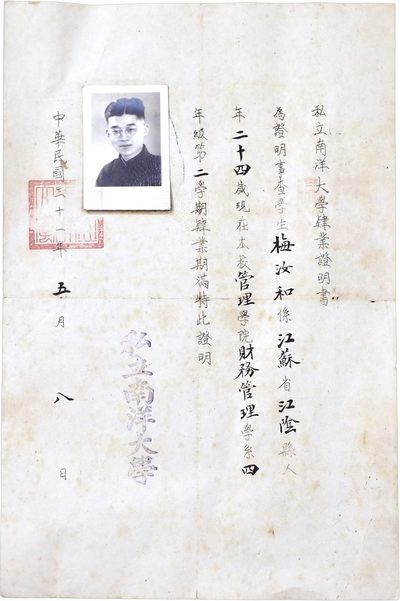 私立南洋大學肄業證明書
為證明事查學生梅汝和係江蘇省江陰縣人
年二十四歲現在本校管理學院財務管理學系四
年級第二學期肄業期滿特此證明
中華民國三十一年五月八日
私立南洋大學